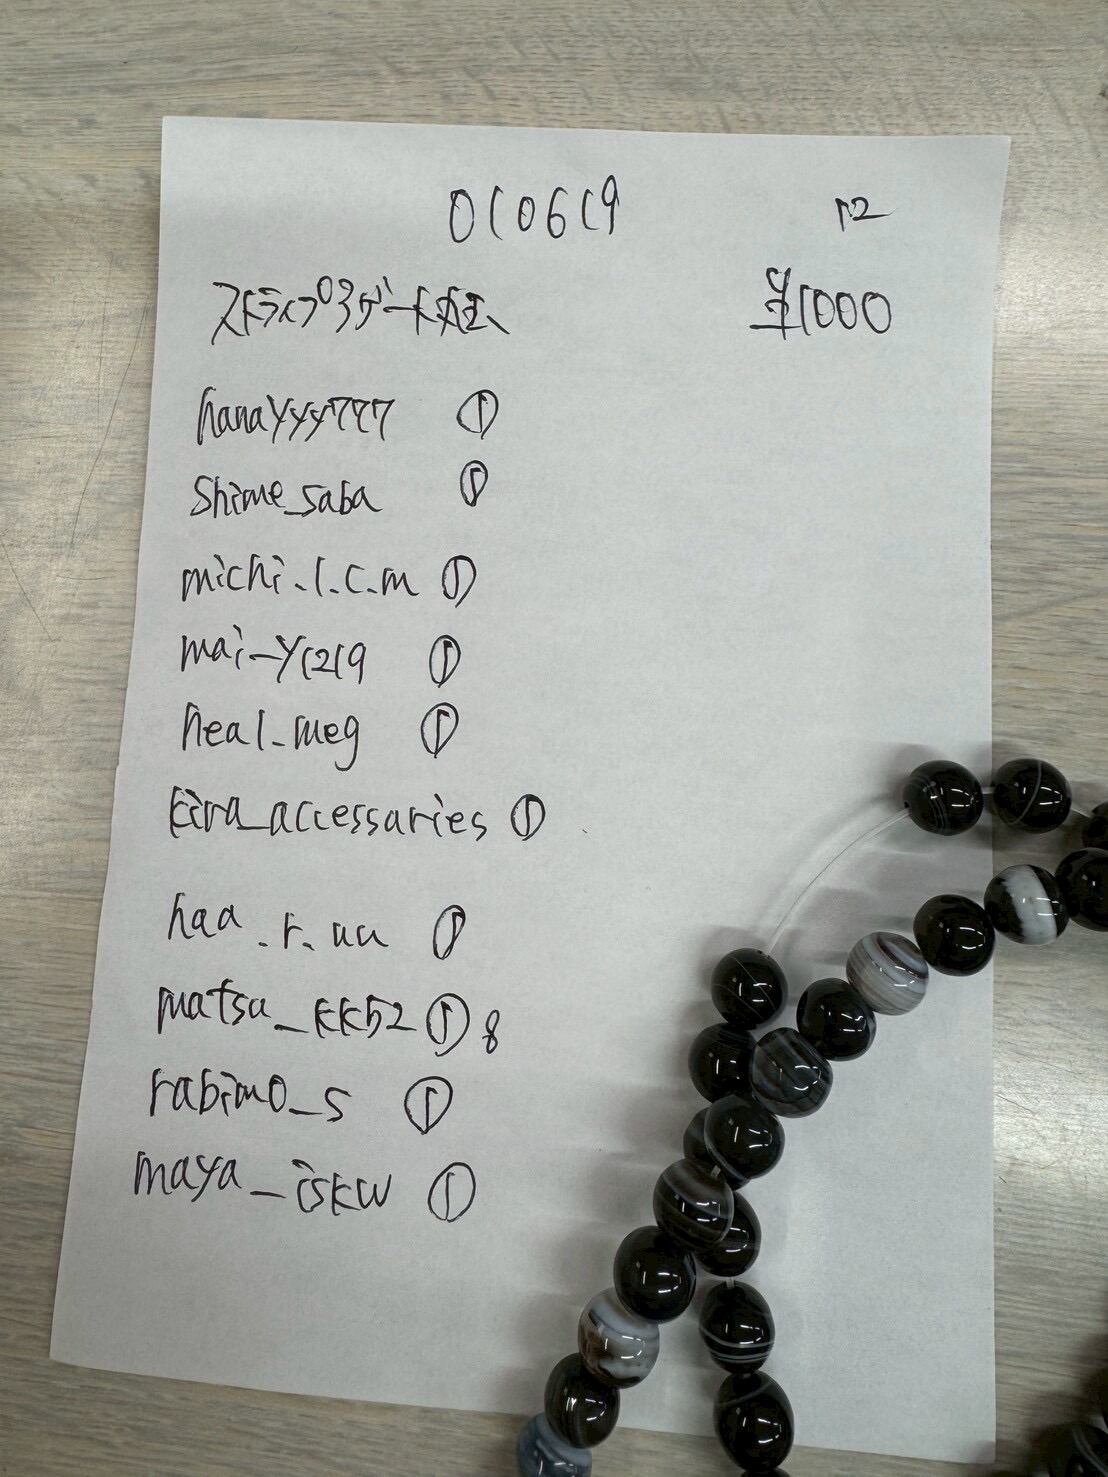 010619 12
ストライプアゲート丸玉 ¥1000
hanayyy777 ①
shime_saba ①
michi.l.c.m ①
mai_y1219 ①
heal_meg ①
kira_accessaries ①
haa.r.uu ①
matsu_kk52 ① 8
rabimo_s ①
maya_iskw ①